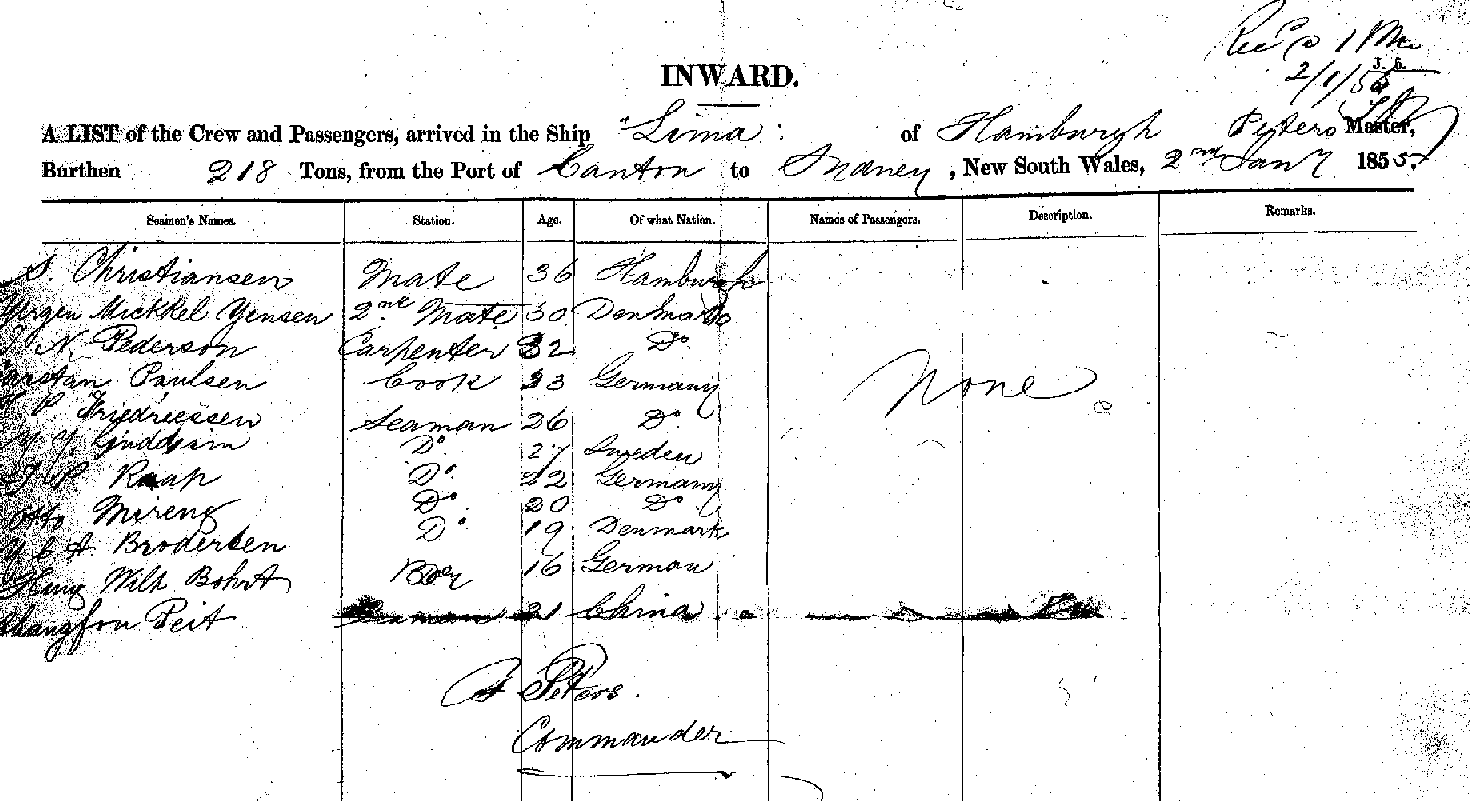 Rec'd 1 Pm
2/1/55
INWARD.
A LIST of the Crew and Passengers, arrived in the Ship "Lima" of Hamburgh Peters Master,
Burthen 218 Tons, from the Port of Canton to Sydney, New South Wales, 2nd Jany 1855.
Seamen's Names. Station. Age. Of what Nation. Names of Passengers. Description. Remarks.
S. Christiansen Mate 36 Hamburgh
Yurgen Mickkel Yensen 2nd Mate 30 Denmark
N. Pederson Carpenter 32 Do
Carstan Paulsen Cook 23 Germany
None
P Friedricssen Seaman 26 Do
Do 27 Sweden
P. Raap Do 22 Germany
Otto Mireng Do 20 Do
A. Brodersen Do 19 Denmark
Wilh Bohrt Boy 16 German
Peit Seaman 21 China
Peters
Commander